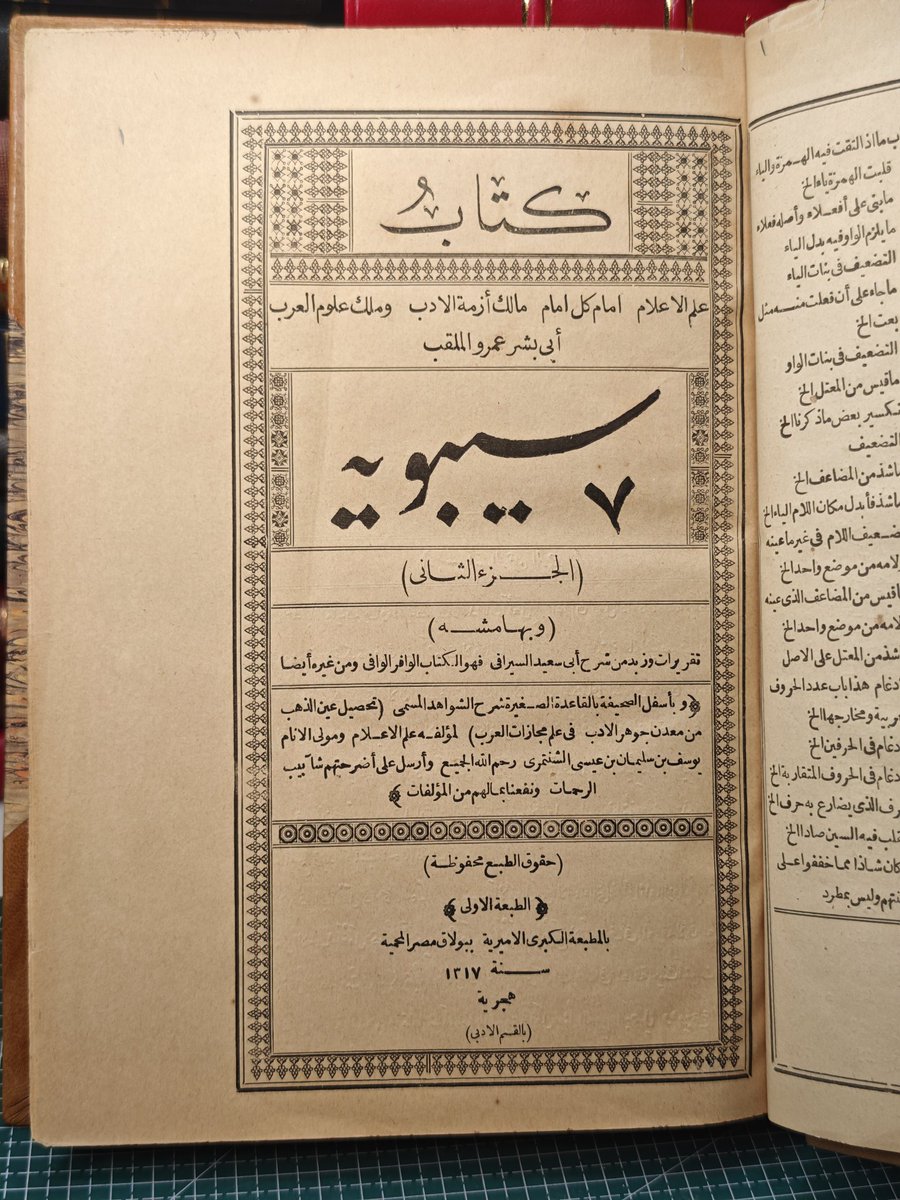 كتابُ
علم الاعلام امام كل امام مالك أزمة الادب وملك علوم العرب
أبى بشر عمرو الملقب
سيبويه
(الجزء الثانى)
(وبهامشه)
تقريرات وزبد من شرح أبى سعيد السيرافى فهو الكتاب الوافر الوافى ومن غيره أيضا
﴿وبأسفل الصحيفة بالقاعدة الصغيرة شرح الشواهد المسمى (تحصيل عين الذهب
من معدن جوهر الادب فى علم مجازات العرب) لمؤلفه علم الاعلام ومولى الانام
يوسف بن سليمان بن عيسى الشنتمرى رحم الله الجميع وأرسل على أضرحتهم شآبيب
الرحمات ونفعنا بمالهم من المؤلفات﴾
(حقوق الطبع محفوظة)
﴿الطبعة الاولى﴾
بالمطبعة الكبرى الاميرية ببولاق مصر المحمية
سنة ١٣١٧
هجرية
(بالقسم الادبى)
١
ب ما اذا التقت فيه الهمزة والياء
قلبت الهمزة ياء الخ
ما بنى على أفعلاء وأصله فعلاء
ما يلزم الواو فيه بدل الياء
التضعيف فى بنات الياء
ما جاء على أن فعلت منه مثل
بعت الخ
التضعيف فى بنات الواو
ما قيس من المعتل الخ
تكسير بعض ما ذكرنا الخ
التضعيف
ما شذ من المضاعف الخ
ما شذ فأبدل مكان اللام الياء الخ
ضعيف اللام فى غير ما عينه
ولامه من موضع واحد الخ
ما قيس من المضاعف الذى عينه
لامه من موضع واحد الخ
شذ من المعتل على الاصل
دغام هذا باب عدد الحروف
عربية ومخارجها الخ
دغام فى الحرفين الخ
دغام فى الحروف المتقاربة الخ
رف الذى يضارع به حرف الخ
قلب فيه السين صادا الخ
كان شاذا مما خففوا على
نتهم وليس بمطرد